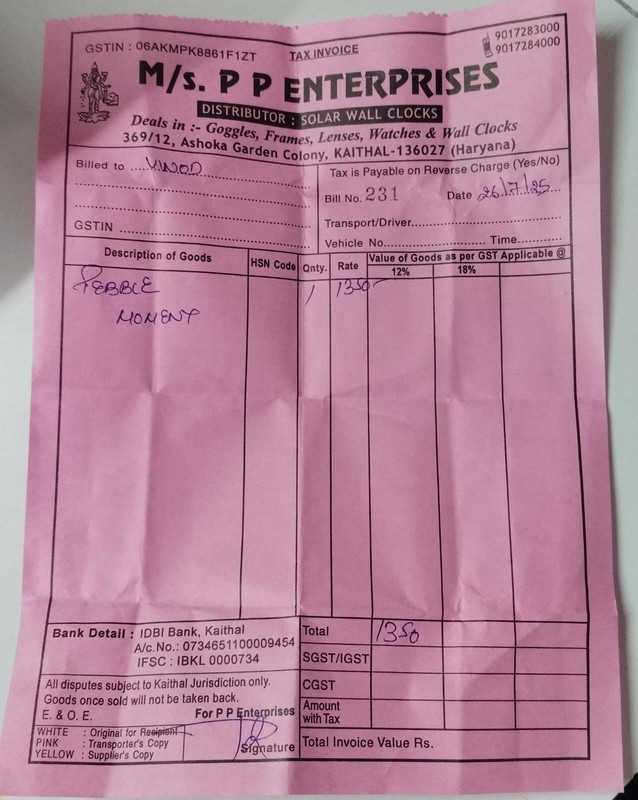 GSTIN : 06AKMPK8861F1ZT TAX INVOICE 9017283000
9017284000
M/s. P P ENTERPRISES
DISTRIBUTOR : SOLAR WALL CLOCKS
Deals in :- Goggles, Frames, Lenses, Watches & Wall Clocks
369/12, Ashoka Garden Colony, KAITHAL-136027 (Haryana)
Billed to ....VINOD....
GSTIN ....
Tax is Payable on Reverse Charge (Yes/No)
Bill No. 231 Date 26/7/25
Transport/Driver....
Vehicle No.... Time....
Description of Goods HSN Code Qnty. Rate Value of Goods as per GST Applicable @
12% 18%
PEBBLE 1 1350
MOMENT
Bank Detail : IDBI Bank, Kaithal
A/c.No.: 0734651100009454
IFSC : IBKL 0000734
All disputes subject to Kaithal Jurisdiction only.
Goods once sold will not be taken back.
E. & O. E. For P P Enterprises
WHITE : Original for Recipient
PINK : Transporter's Copy
YELLOW : Supplier's Copy
Signature
Total 1350
SGST/IGST
CGST
Amount
with Tax
Total Invoice Value Rs.